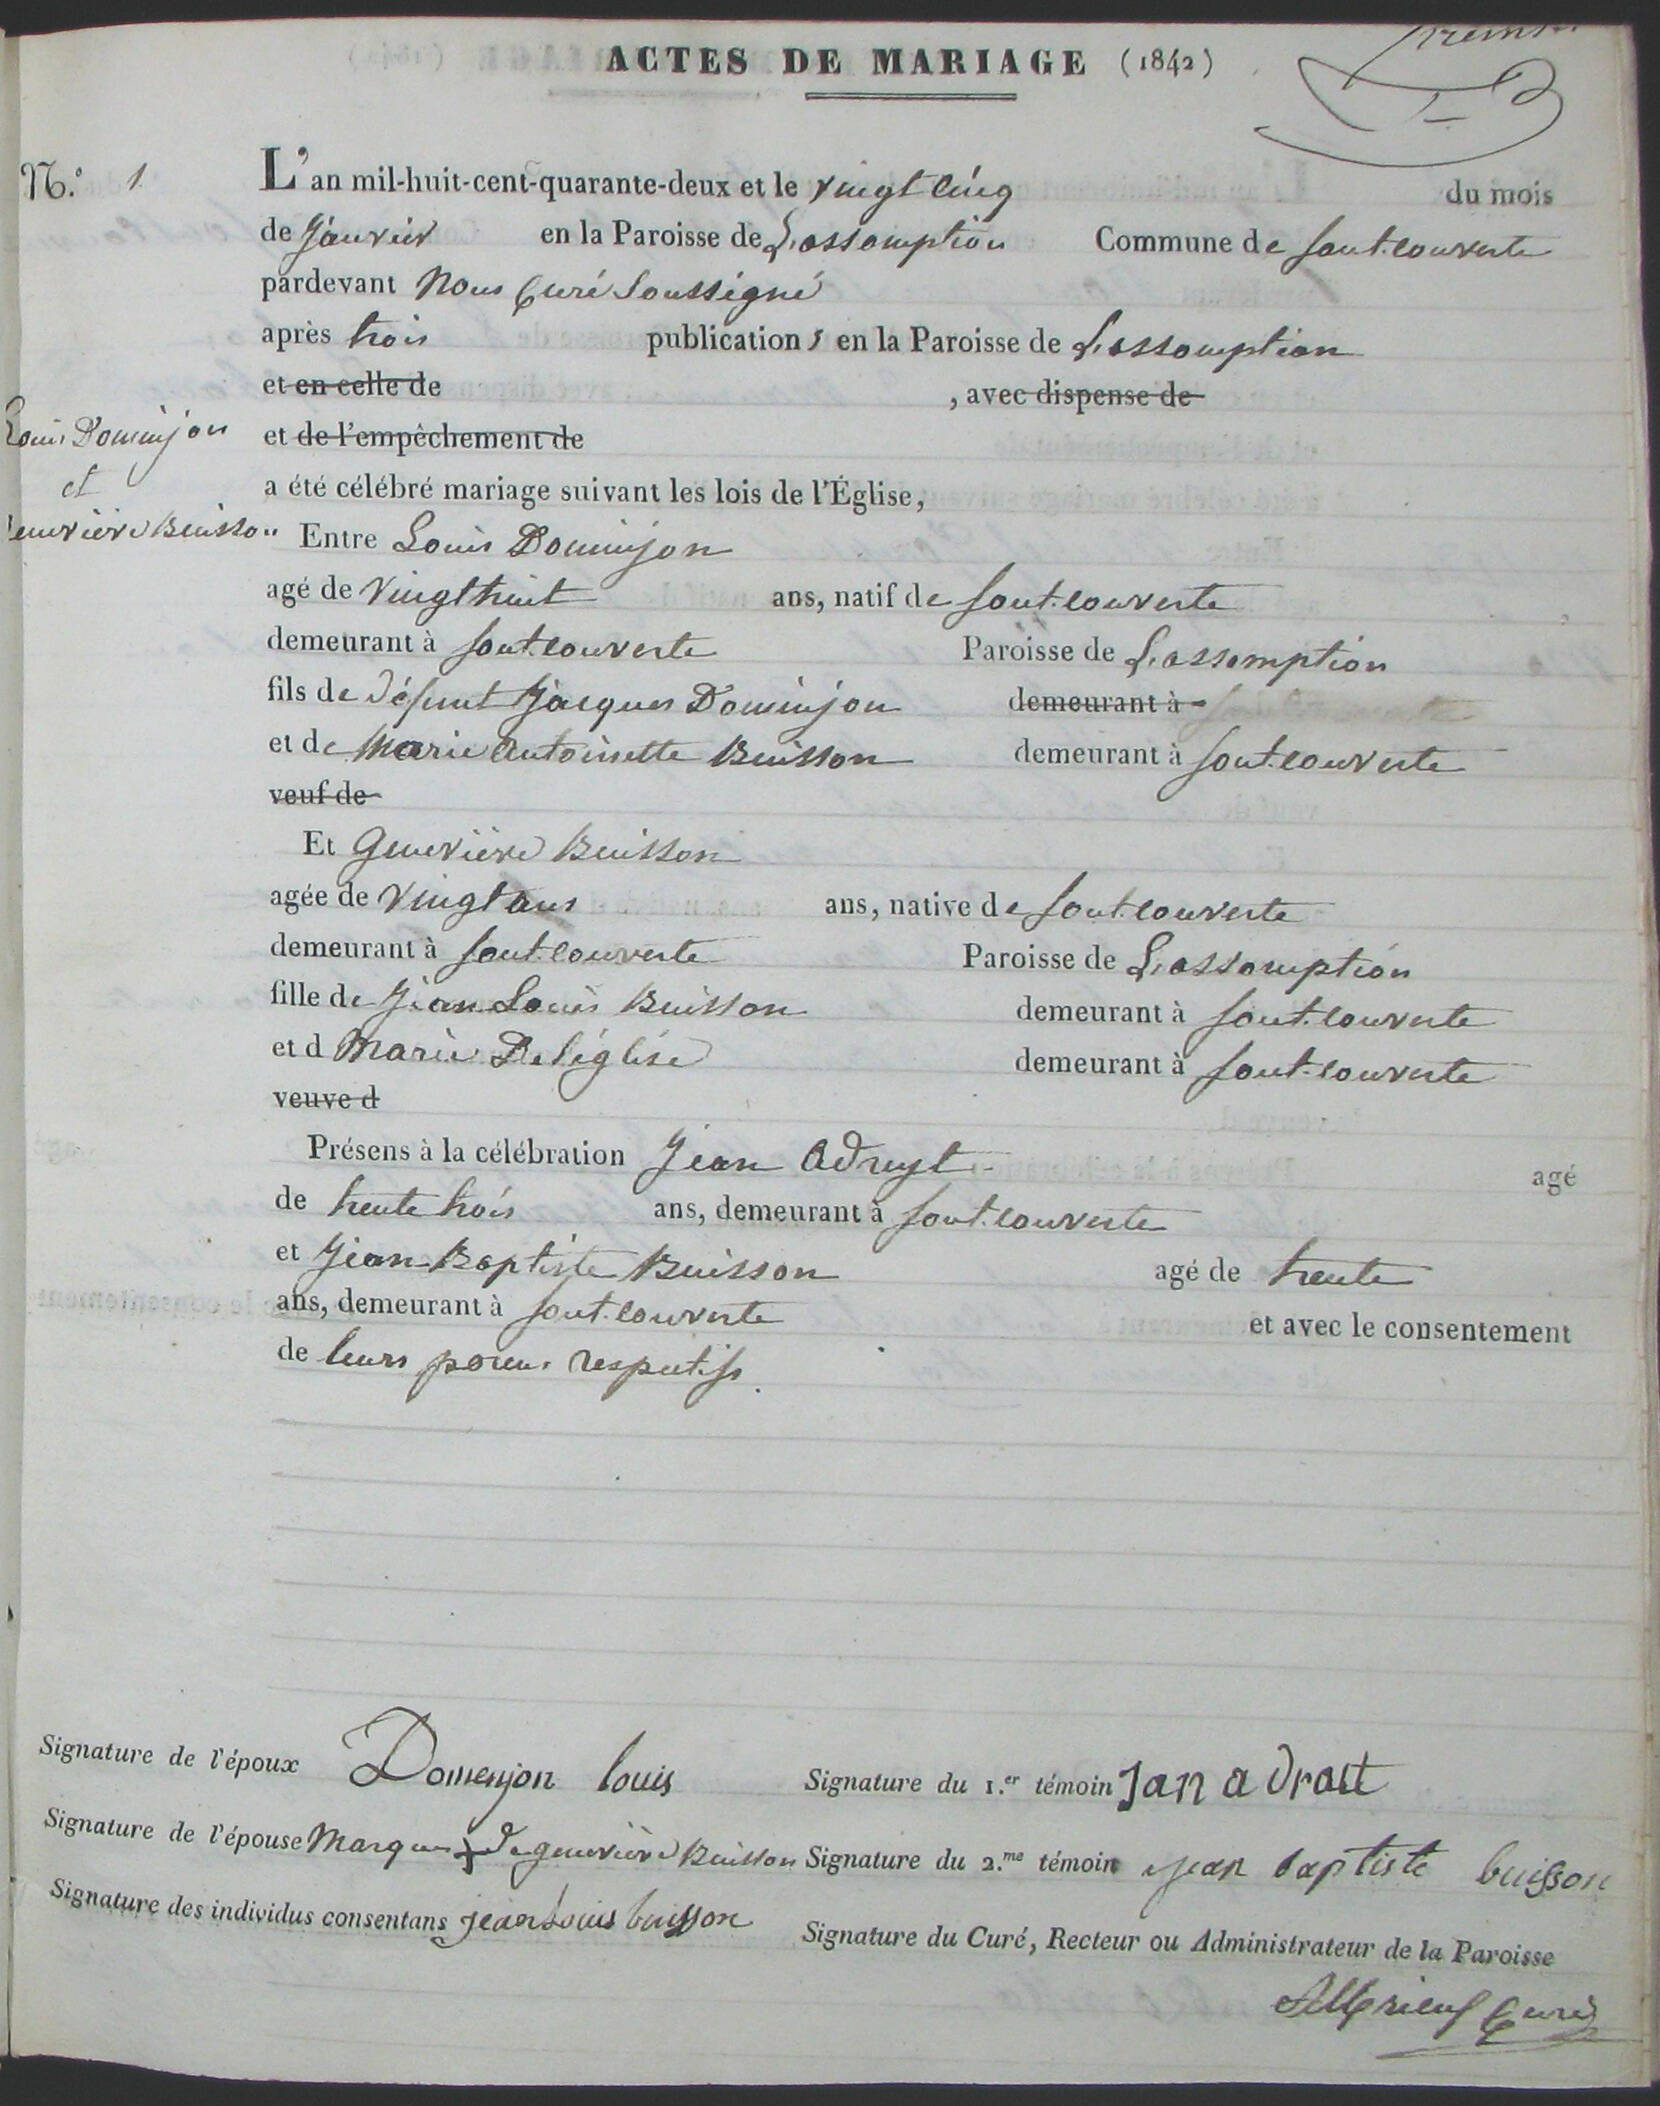 ACTES DE MARIAGE (1842)
N.º 1
L'an mil-huit-cent-quarante-deux et le vingt cinq du mois
de Janvier en la Paroisse de L'assomption Commune de font-couverte
pardevant Nous Curé Soussigné
après trois publications en la Paroisse de L'assomption
et en celle de , avec dispense de
et de l'empêchement de
Louis Dominjon
et
Genevière Buisson
a été célébré mariage suivant les lois de l'Église,
Entre Louis Dominjon
agé de vingt huit ans, natif de font-couverte
demeurant à font-couverte Paroisse de L'assomption
fils de défunt Jacques Dominjon demeurant à
et de Marie antoinette Buisson demeurant à font-couverte
veuf de
Et Genevière Buisson
agée de vingt ans ans, native de font-couverte
demeurant à font-couverte Paroisse de L'assomption
fille de Jean Louis Buisson demeurant à font-couverte
et d Marie Deléglise demeurant à font-couverte
veuve d
Présens à la célébration Jean Adruyt agé
de trente trois ans, demeurant à font-couverte
et Jean-Baptiste Buisson agé de trente
ans, demeurant à font-couverte et avec le consentement
de leurs respectifs
Signature de l'époux Domenjon louis
Signature du 1.er témoin Jan adrait
Signature de l'épouse Marque + de genevière Buisson
Signature du 2.me témoin jean baptiste buisson
Signature des individus consentans jean Louis buisson
Signature du Curé, Recteur ou Administrateur de la Paroisse
Curé